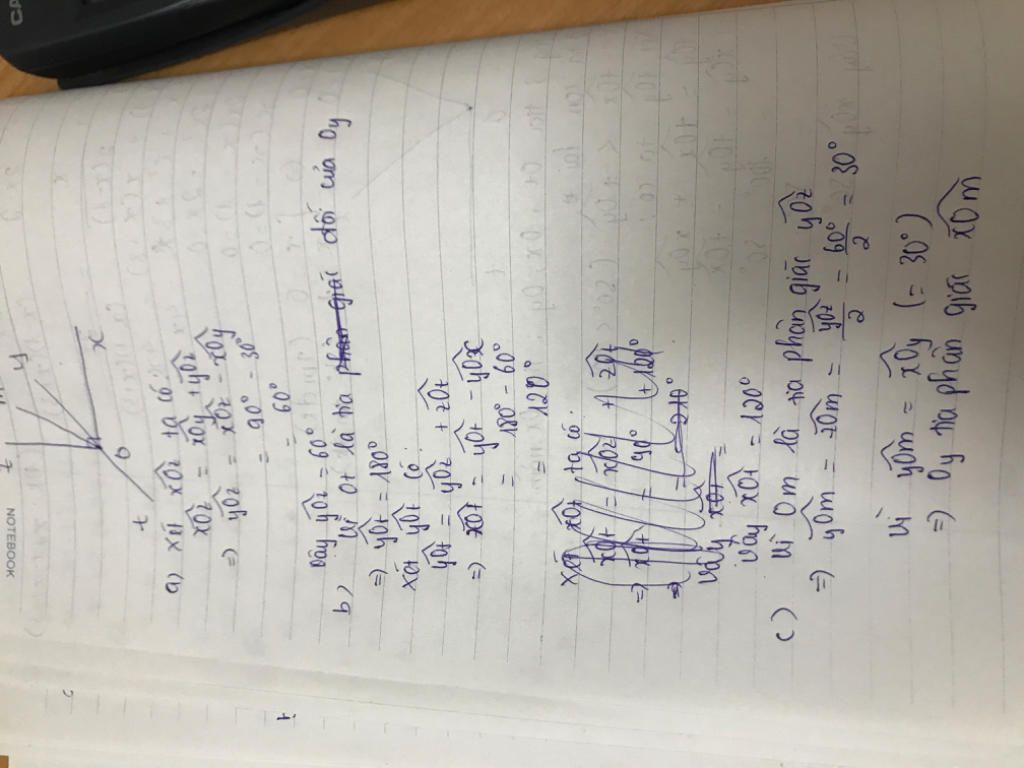 NOTEBOOK
z
y
x
O
t
a) xét xOz ta có:
xOz = xOy + yOz
=> yOz = xOz - xOy
= 90° - 30°
= 60°
vậy yOz = 60°
b) Vì Ot là tia phân giác đối của Oy
=> yOt = 180°
xét yOt có:
yOt = yOz + zOt
=> xOt = yOt - yOx
= 180° - 60°
= 120°
xét xOt ta có:
xOt = xOz + zOt
=> xOt = 90° + 120°
=> = 210°
vậy xOt =
vậy xOt = 120°
c) Vì Om là tia phân giác yOz
=> yOm = zOm = yOz/2 = 60°/2 = 30°
Vì yOm = xOy (= 30°)
=> Oy tia phân giác xOm